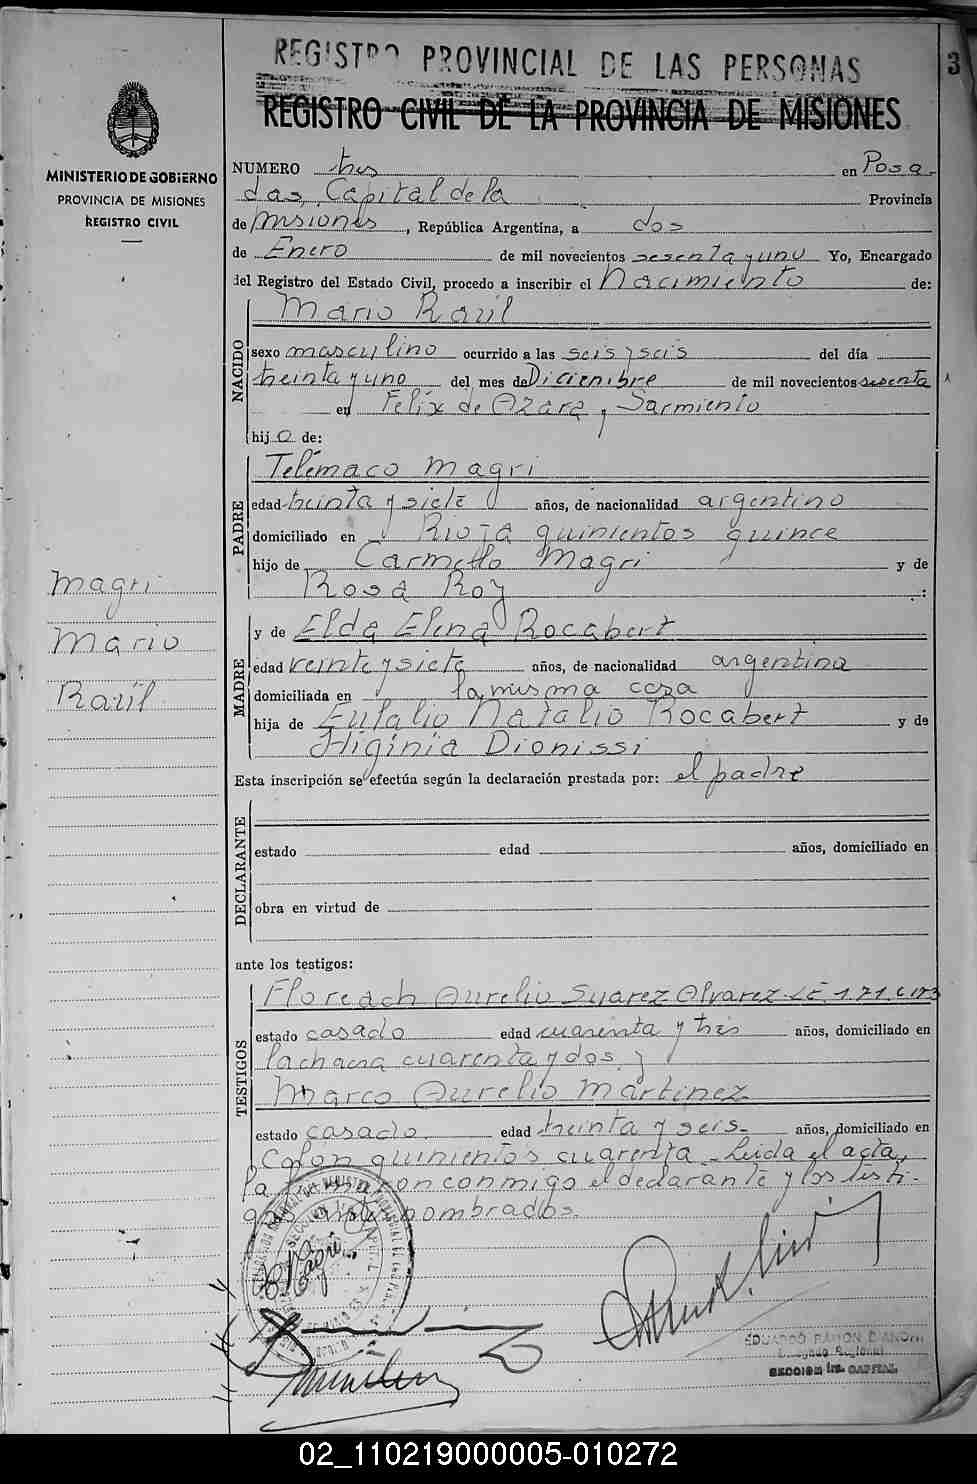 REGISTRO PROVINCIAL DE LAS PERSONAS
3
REGISTRO CIVIL DE LA PROVINCIA DE MISIONES
MINISTERIO DE GOBIERNO
PROVINCIA DE MISIONES
REGISTRO CIVIL
NUMERO tres en Posa-
das, Capital de la Provincia
de Misiones, República Argentina, a dos
de Enero de mil novecientos sesenta y uno Yo, Encargado
del Registro del Estado Civil, procedo a inscribir el Nacimiento de:
NACIDO
Mario Raúl
sexo masculino ocurrido a las seis y seis del día
treinta y uno del mes de Diciembre de mil novecientos sesenta
en Felix de Azara y Sarmiento
hijo de:
PADRE
Telémaco Magri
edad treinta y siete años, de nacionalidad argentino
domiciliado en Rioja quinientos quince
hijo de Carmello Magri y de
Rosa Roy :
Magri
Mario
Raúl
MADRE
y de Elda Elena Rocabert
edad veinte y siete años, de nacionalidad argentina
domiciliada en la misma casa
hija de Eulalio Natalio Rocabert y de
Higinia Dionissi
Esta inscripción se efectúa según la declaración prestada por: el padre
DECLARANTE
estado edad años, domiciliado en
obra en virtud de
ante los testigos:
TESTIGOS
Aurelio Suarez Alvarez LE
estado casado edad cuarenta y tres años, domiciliado en
cuarenta y dos y
Marco Aurelio Martinez
estado casado edad treinta y seis años, domiciliado en
Colon quinientos cuarenta. Leida el acta,
la conmigo el declarante y los testi-
gos nombrados.
EDUARDO RAMON
Delegado Regional
SECCION 1ra. CAPITAL
02_110219000005-010272